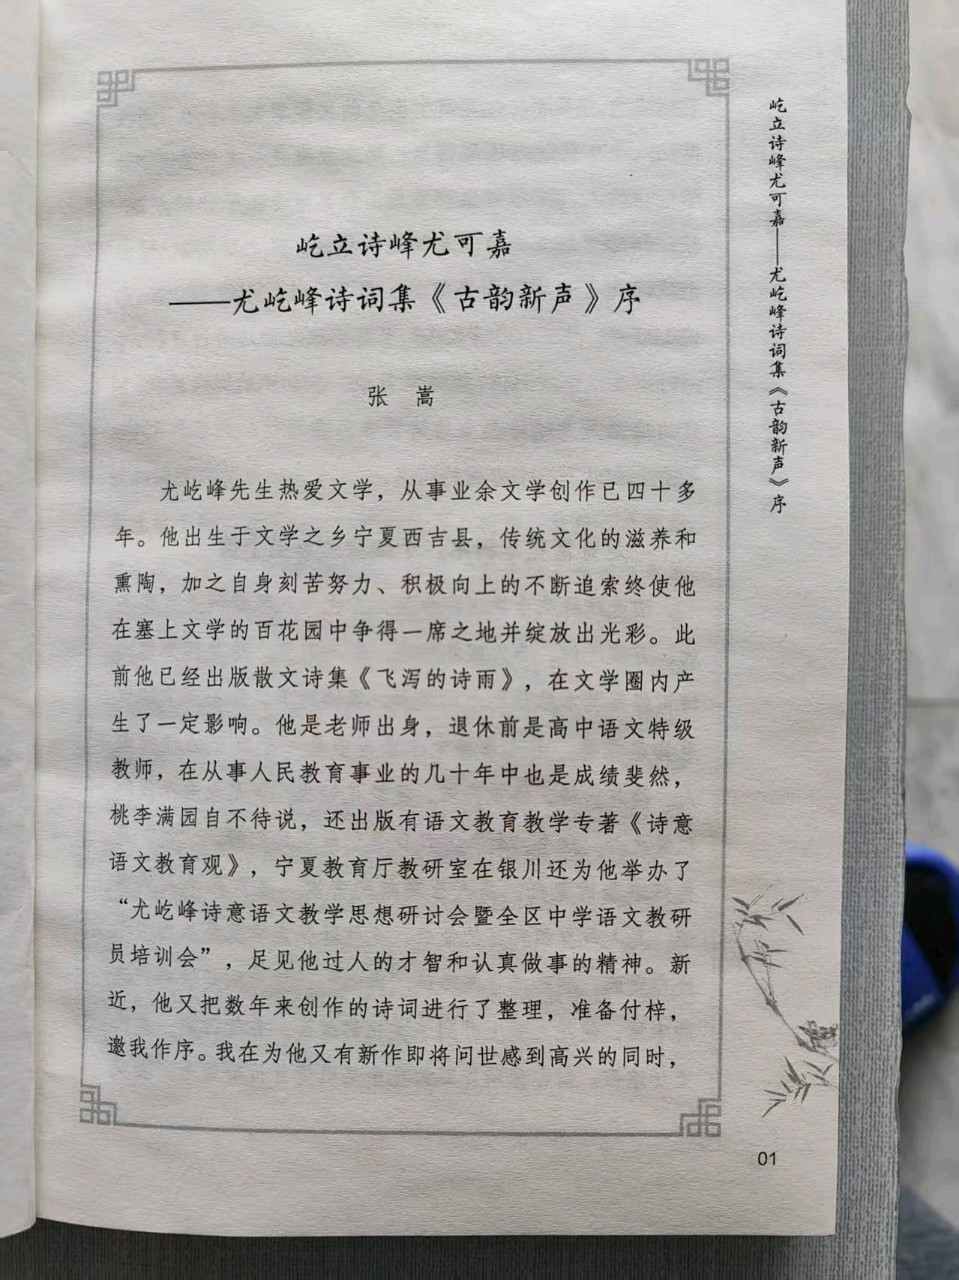 屹立诗峰尤可嘉
——尤屹峰诗词集《古韵新声》序
张 嵩
尤屹峰先生热爱文学，从事业余文学创作已四十多
年。他出生于文学之乡宁夏西吉县，传统文化的滋养和
熏陶，加之自身刻苦努力、积极向上的不断追索终使他
在塞上文学的百花园中争得一席之地并绽放出光彩。此
前他已经出版散文诗集《飞泻的诗雨》，在文学圈内产
生了一定影响。他是老师出身，退休前是高中语文特级
教师，在从事人民教育事业的几十年中也是成绩斐然，
桃李满园自不待说，还出版有语文教育教学专著《诗意
语文教育观》，宁夏教育厅教研室在银川还为他举办了
“尤屹峰诗意语文教学思想研讨会暨全区中学语文教研
员培训会”，足见他过人的才智和认真做事的精神。新
近，他又把数年来创作的诗词进行了整理，准备付梓，
邀我作序。我在为他又有新作即将问世感到高兴的同时，
屹立诗峰尤可嘉——尤屹峰诗词集《古韵新声》序
01